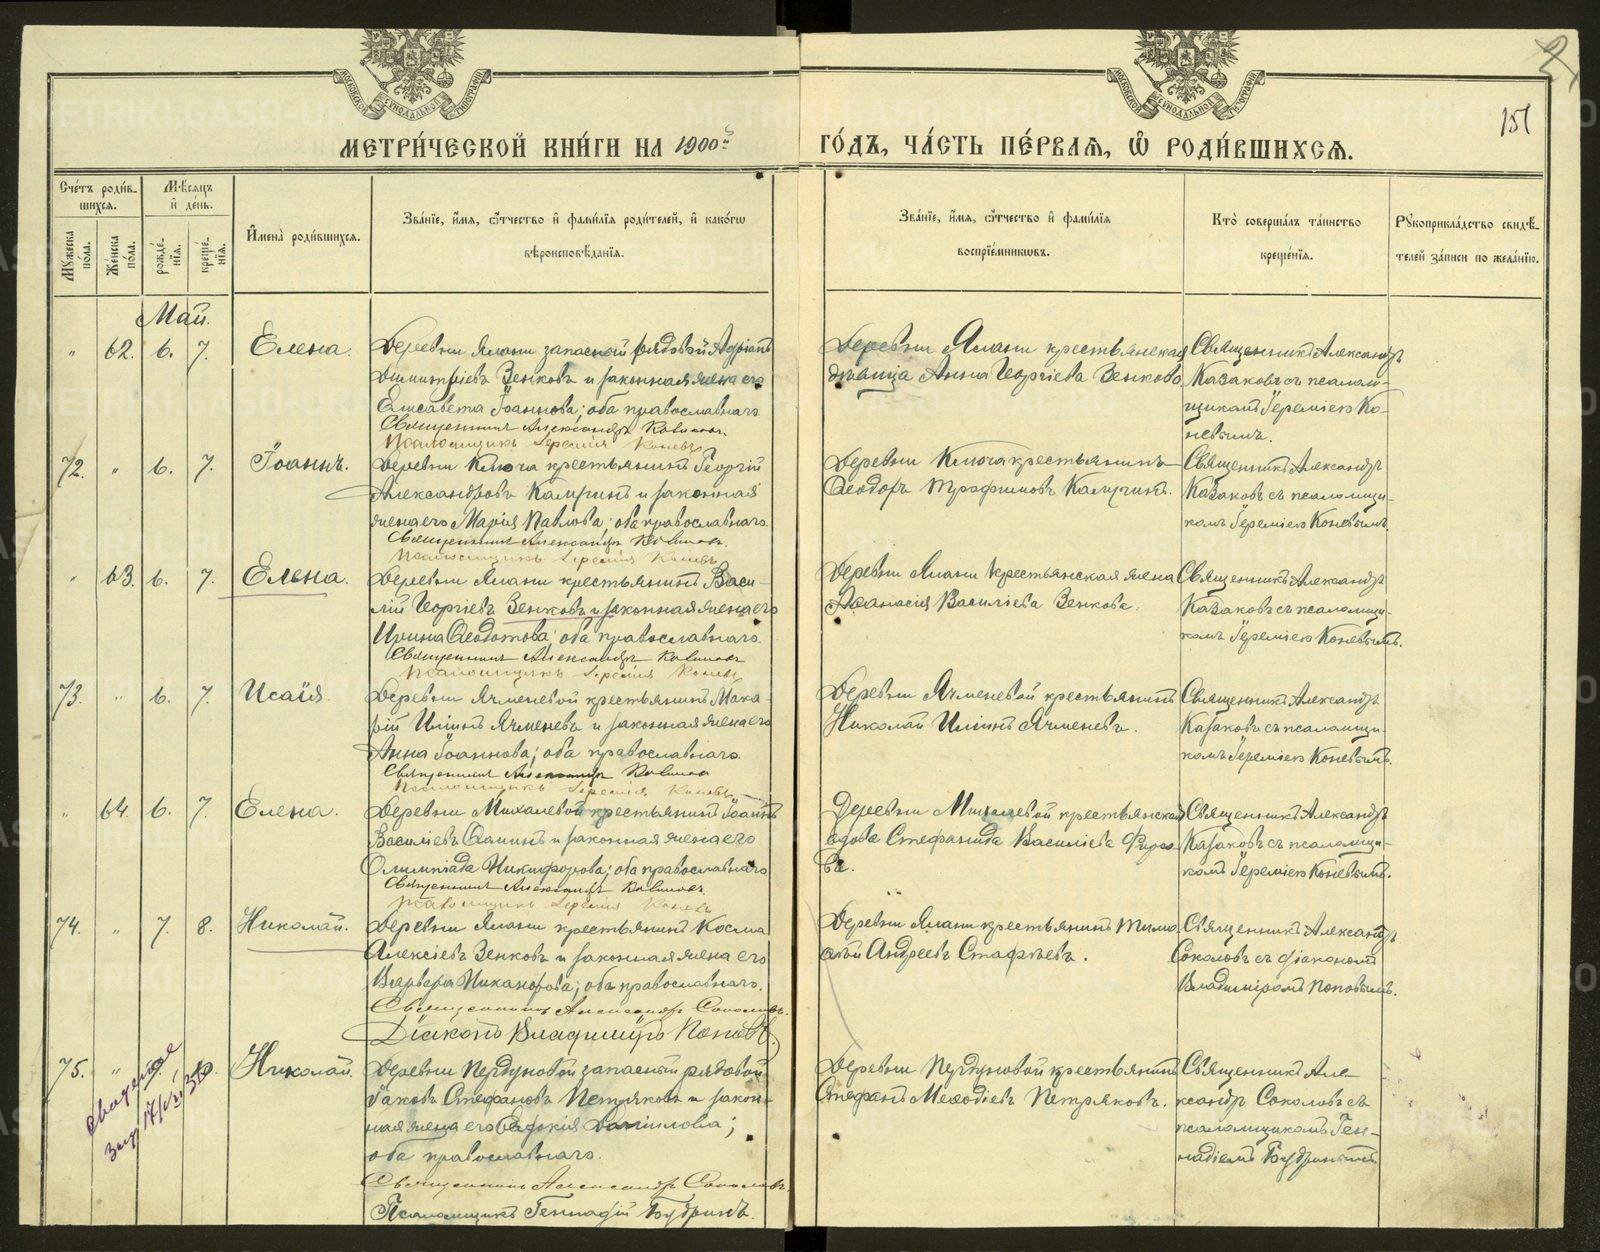 МЕТРИ́ЧЕСКОЙ КНИ́ГИ НА 1900й ГО́ДЪ, ЧА́СТЬ ПЕ́РВАѦ, Ѡ҆ РОДИ́ВШИХСѦ.
151
Сче́тъ роди́в-
шихсѧ.
Мѣ́сѧцъ
и҆ де́нь.
Мꙋ́жеска по́ла.
Же́нска по́ла.
рожде́-
нїѧ.
креще́-
нїѧ.
И҆мена̀ роди́вшихсѧ.
Зва́нїе, и҆́мѧ, ѻ҆́тчество и҆ фами́лїѧ роди́телей, и҆ како́гѡ
вѣроисповѣ́данїѧ.
Зва́нїе, и҆́мѧ, ѻ҆́тчество и҆ фами́лїѧ
воспрїе́мникѡвъ.
Кто̀ соверша́лъ та́инство
креще́нїѧ.
Рꙋкоприкла́дство свидѣ́-
телей за́писи по жела́нїю.
Май.
" 62. 6. 7. Елена.
Деревни Ялани запасной рядовой Адріанъ
Димитріевъ Зенковъ и законная жена его
Елисавета Іоаннова; оба православнаго.
Священникъ Александръ Казаковъ.
Псаломщикъ Іеремія Коневъ
Деревни Ялани крестьянская
дѣвица Анна Георгіева Зенкова
Священникъ Александръ
Казаковъ съ псалом-
щикомъ Іереміею Ко-
невымъ.
72. " 6. 7. Іоаннъ.
Деревни Ключа крестьянинъ Георгій
Александровъ и законная
жена его Марія Павлова; оба православнаго.
Священникъ Александръ Казаковъ.
Псаломщикъ Іеремія Коневъ
Деревни Ключа крестьянинъ
Ѳеодоръ Трофимовъ
Священникъ Александръ
Казаковъ съ псаломщи-
комъ Іереміею Коневымъ.
" 63. 6. 7. Елена.
Деревни Ялани крестьянинъ Васи-
лій Георгіевъ Зенковъ и законная жена его
Ирина Ѳеодотова; оба православнаго.
Священникъ Александръ Казаковъ
Псаломщикъ Іеремія Коневъ
Деревни Ялани крестьянская жена
Аѳанасія Василіева Зенкова.
Священникъ Александръ
Казаковъ съ псаломщи-
комъ Іереміею Коневымъ.
73. " 6. 7. Исаія.
Деревни Ячменевой крестьянинъ Мака-
рій Ильинъ Ячменевъ и законная жена его
Анна Іоаннова; оба православнаго.
Священникъ Александръ Казаковъ
Псаломщикъ Іеремія Коневъ
Деревни Ячменевой крестьянинъ
Николай Ильинъ Ячменевъ.
Священникъ Александръ
Казаковъ съ псаломщи-
комъ Іереміею Коневымъ.
" 64. 6. 7. Елена.
Деревни Михалевой крестьянинъ Іоаннъ
Василіевъ и законная жена его
Олимпіада Никифорова; оба православнаго
Священникъ Александръ Казаковъ
Псаломщикъ Іеремія Коневъ
Деревни Михалевой крестьянская
вдова Стефанида Василіева
ва.
Священникъ Александръ
Казаковъ съ псаломщи-
комъ Іереміею Коневымъ.
74. " 7. 8. Николай.
Деревни Ялани крестьянинъ Косма
Алексіевъ Зенковъ и законная жена его
Варвара Никанорова; оба православнаго.
Священникъ Александръ Соколовъ.
Діаконъ Владиміръ Поповъ.
Деревни Ялани крестьянинъ Тимо-
ѳей Андреевъ Стафѣевъ.
Священникъ Александръ
Соколовъ съ діакономъ
Владиміромъ Поповымъ.
75. " Николай.
Деревни Пердуновой запасный рядовой
Іаковъ Стефановъ Петряковъ и закон-
ная жена его Евдокія Даніилова;
оба православнаго.
Священникъ Александръ Соколовъ.
Псаломщикъ Геннадій Будринъ.
Деревни Пердуновой крестьянинъ
Стефанъ Меѳодіевъ Петряковъ.
Священникъ Але-
ксандръ Соколовъ съ
псаломщикомъ Ген-
надіемъ Будринымъ